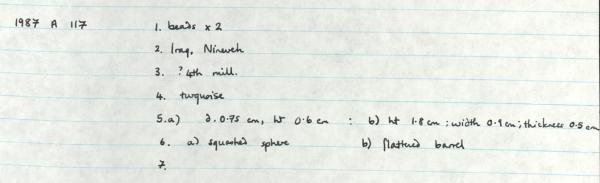 1987 A 117 1. beads x 2
2. Iraq, Nineveh
3. ? 4th mill.
4. turquoise
5. a) d. 0.75 cm, ht 0.6 cm : b) ht 1.8 cm ; width 0.9 cm ; thickness 0.5 cm
6. a) squashed sphere b) flattened barrel
7.